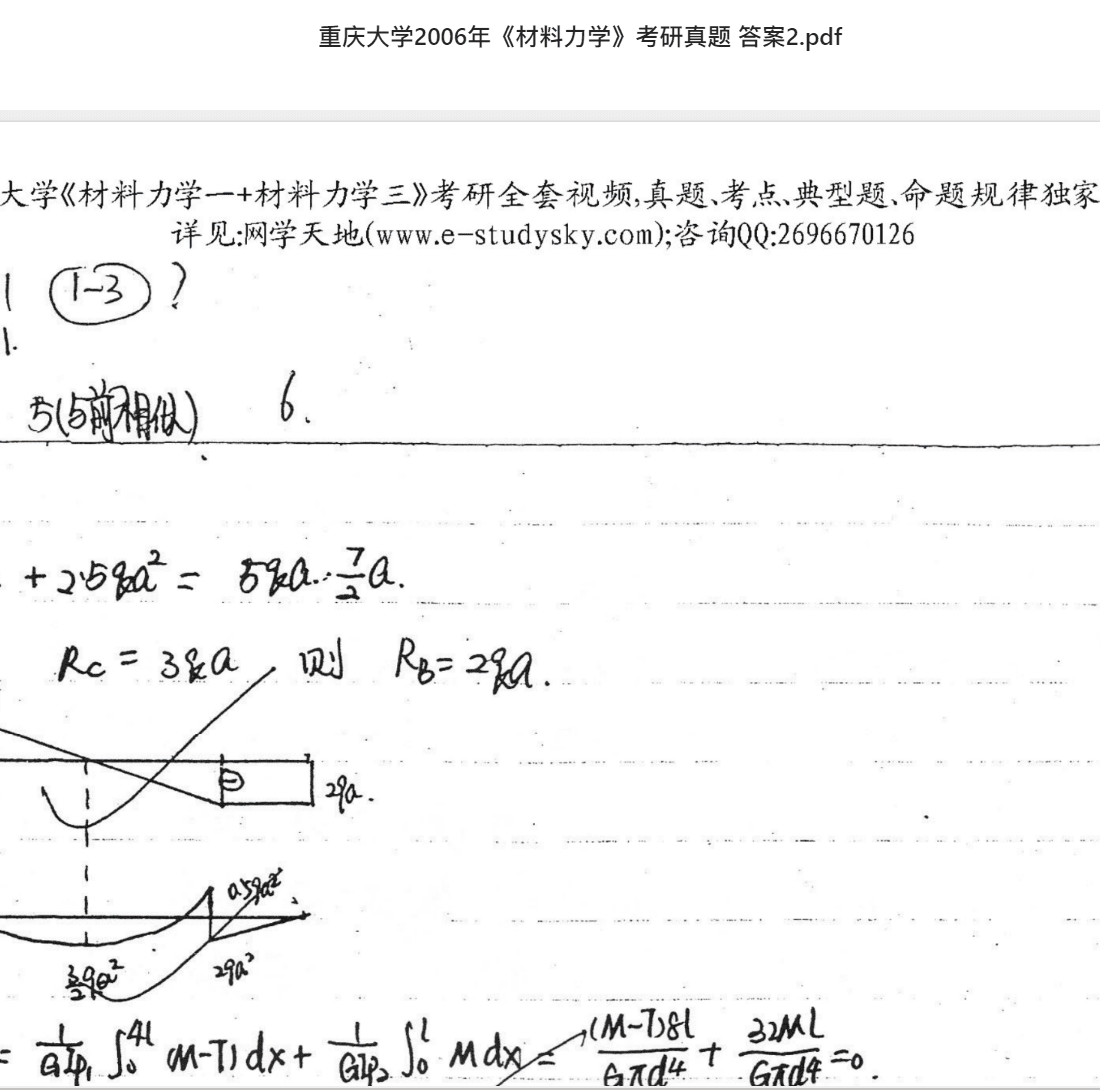 重庆大学2006年《材料力学》考研真题 答案2.pdf
大学《材料力学一+材料力学三》考研全套视频,真题、考点、典型题、命题规律独家
详见:网学天地(www.e-studysky.com);咨询QQ:2696670126
1 1-3 ?
1.
5(与前相似) 6.
+2.5qa² = 5qa·7/2a.
Rc = 3qa, 则 RB=2qa.
⊖ 2qa.
0.5qa²
3/2qa² 2qa²
= 1/GIp₁ ∫₀⁴ˡ (M-T)dx + 1/GIp₂ ∫₀ˡ Mdx = (M-T)8l/Gπd⁴ + 32Ml/Gπd⁴ =0.